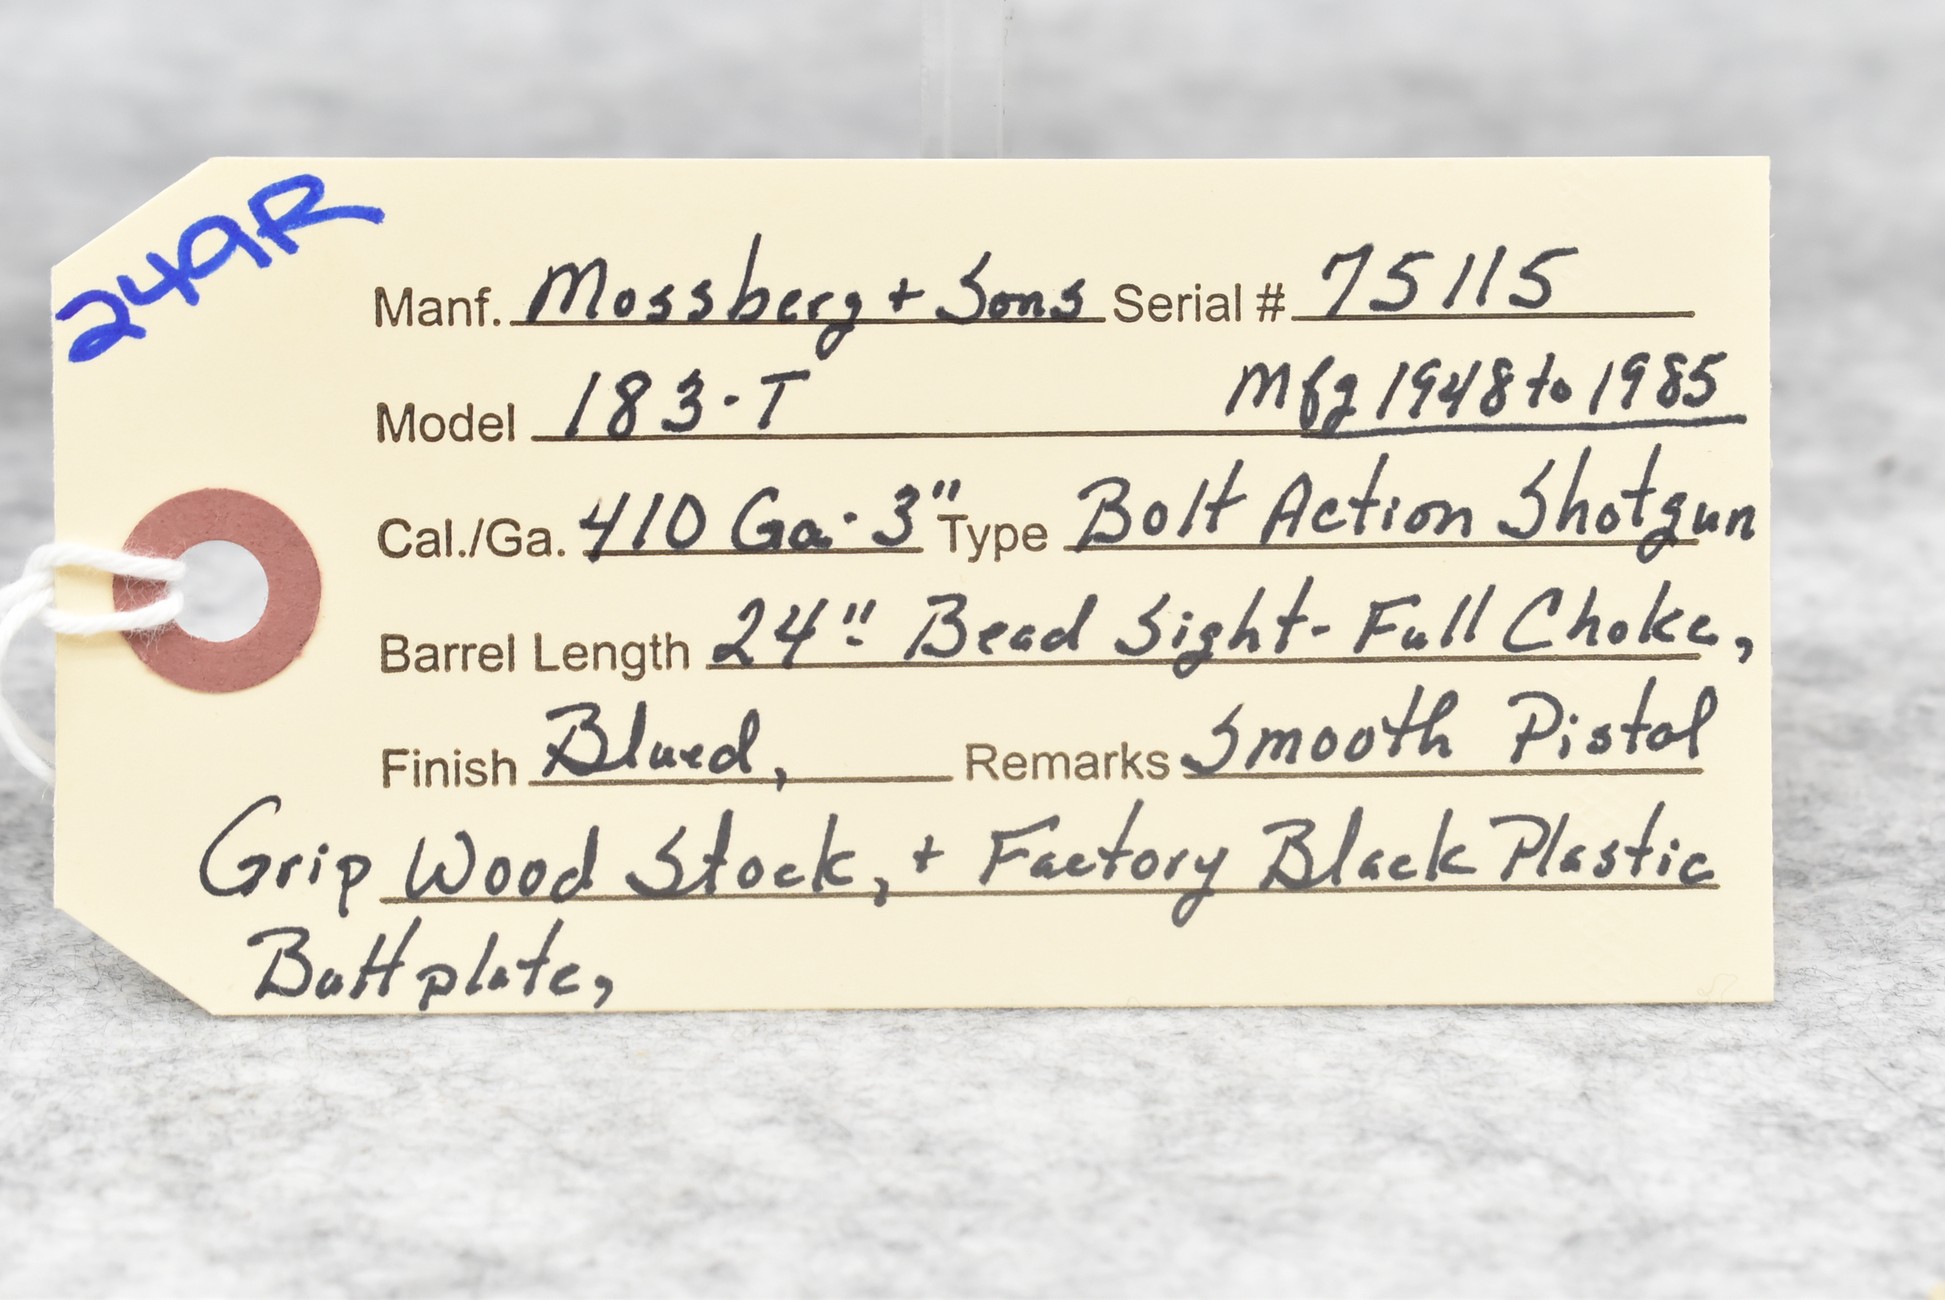 249R
Manf. Mossberg + Sons Serial # 75115
Model 183-T Mfg 1948 to 1985
Cal./Ga. 410 Ga. 3" Type Bolt Action Shotgun
Barrel Length 24" Bead Sight - Full Choke,
Finish Blued, Remarks Smooth Pistol
Grip Wood Stock, + Factory Black Plastic
Buttplate,